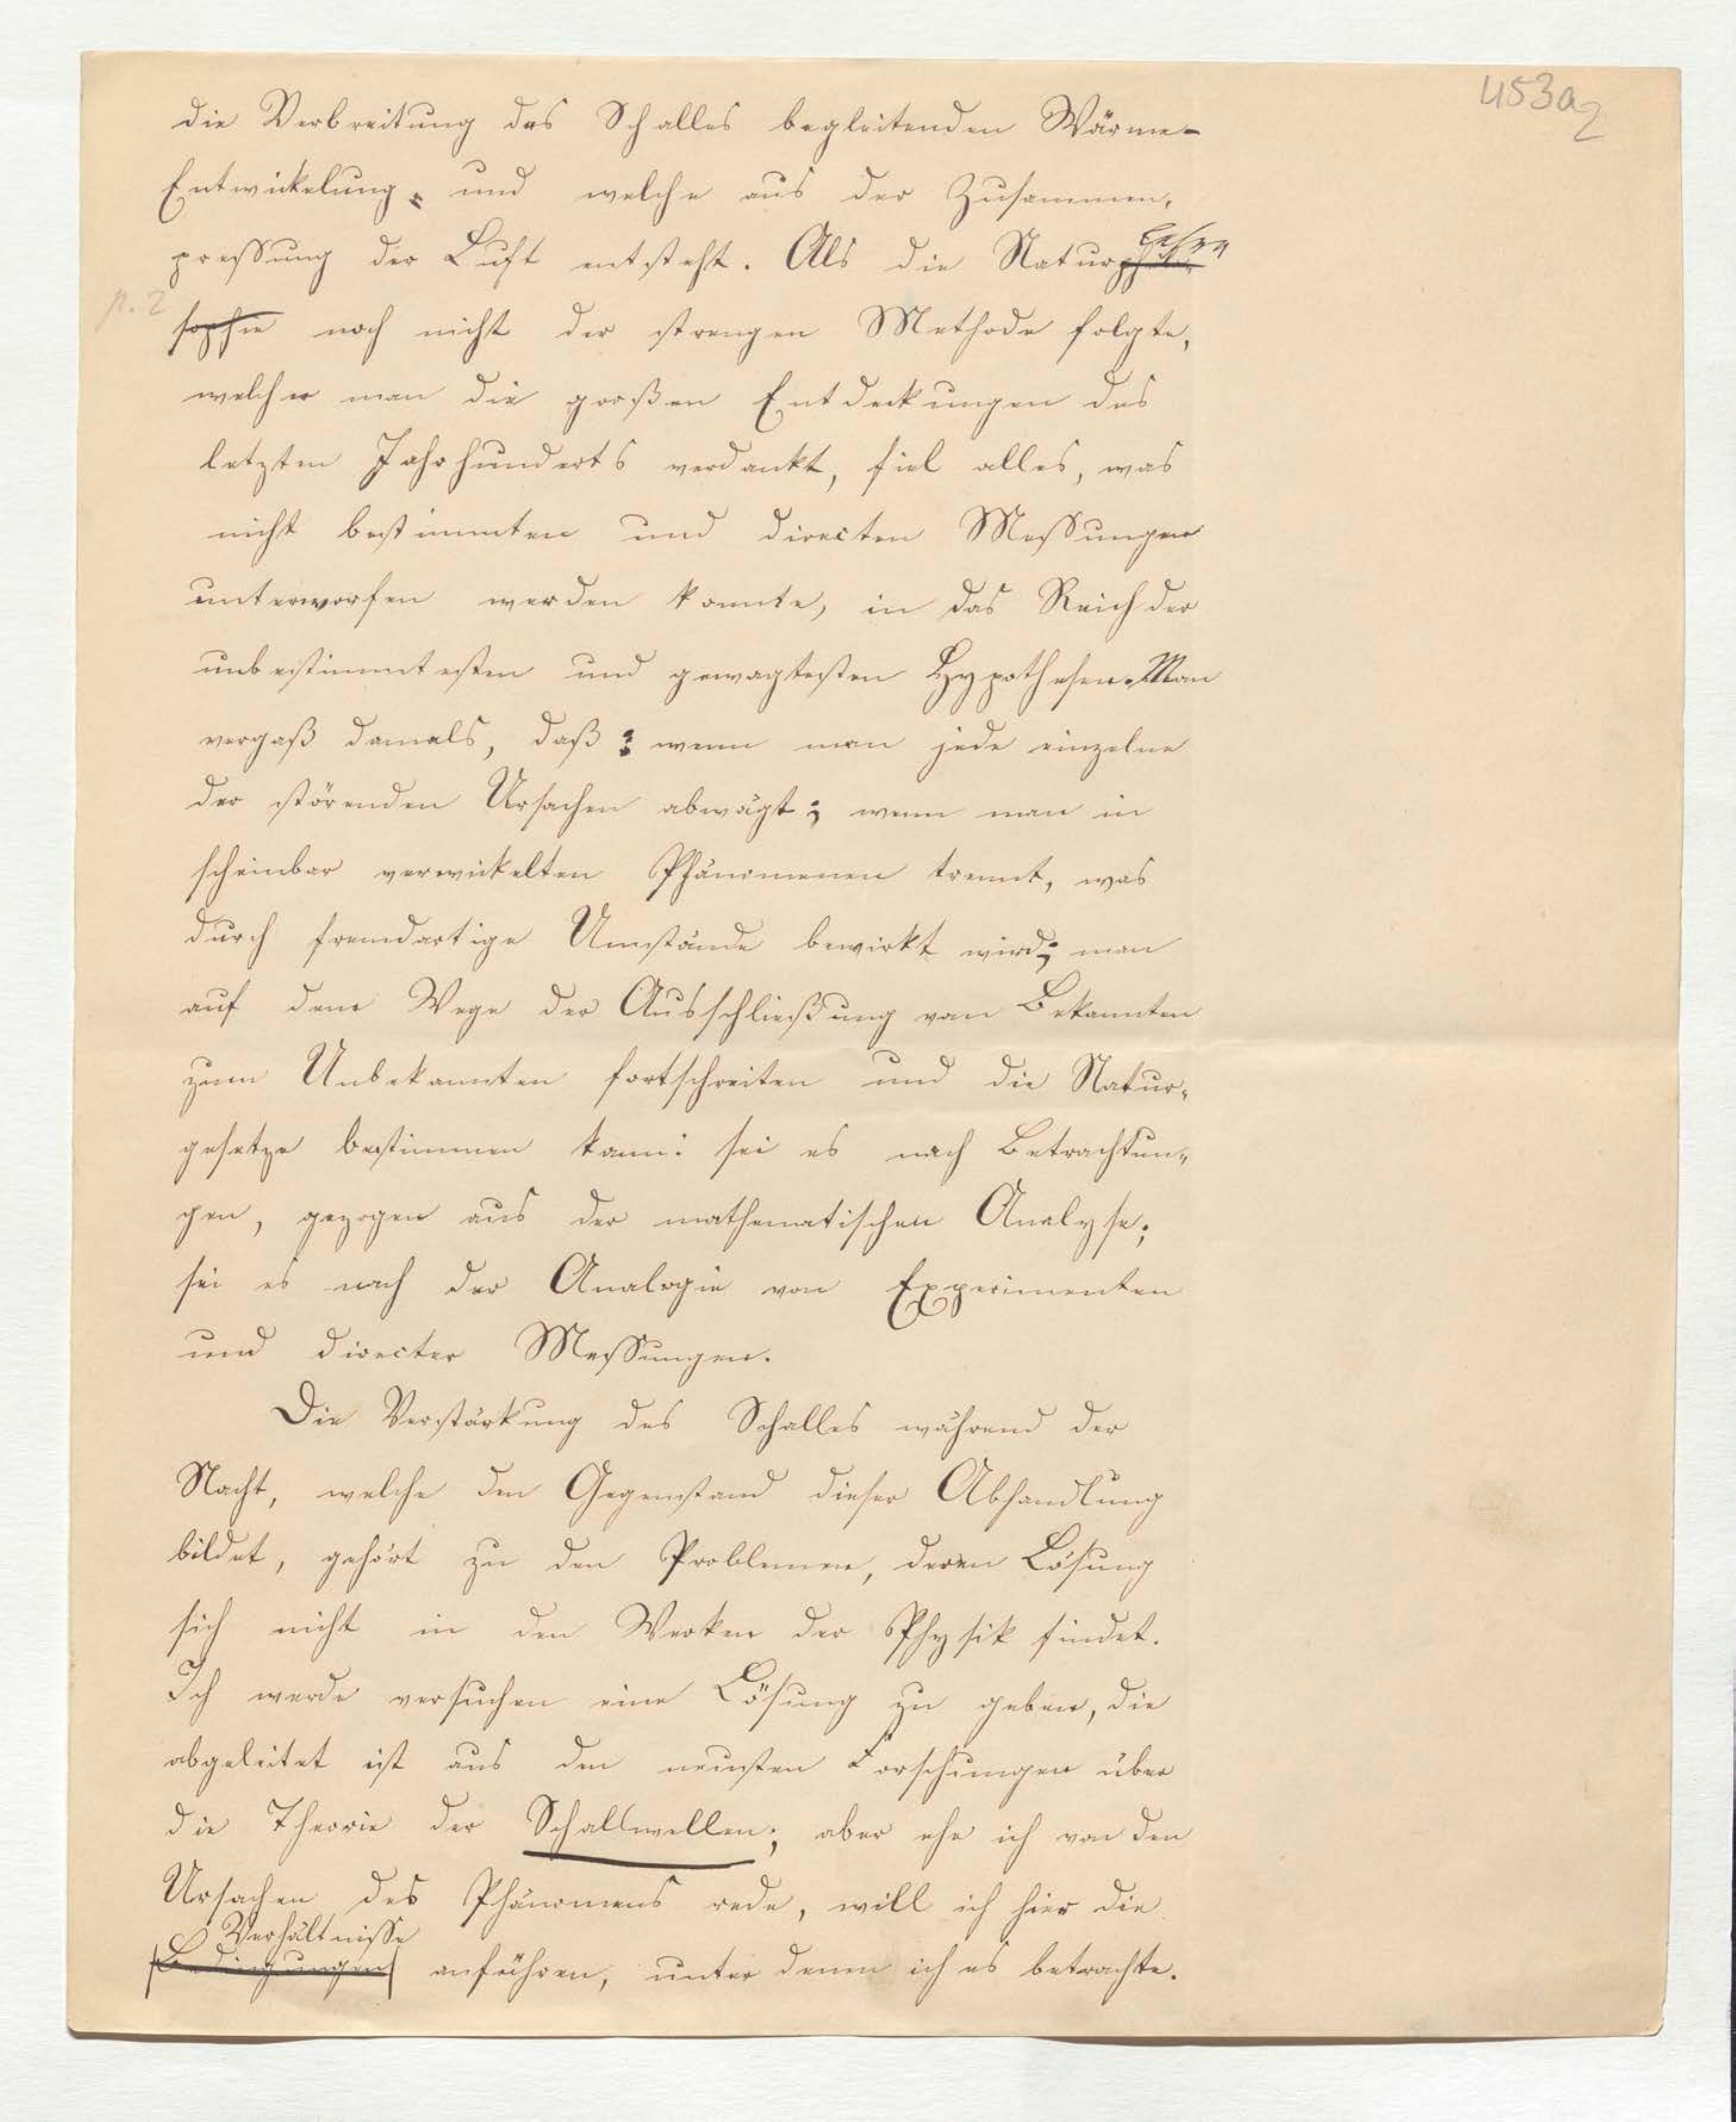 453a2
die Verbreitung des Schalles begleitenden Wärme-
Entwickelung, und welche aus der Zusammen-
pressung der Luft entsteht. Als die Naturphilo-
lehre
p. 2
sophie noch nicht der strengen Methode folgte,
welcher man die großen Entdeckungen des
letzten Jahrhunderts verdankt, fiel alles, was
nicht bestimmten und directen Messungen
unterworfen werden konnte, in das Reich der
unbestimmtesten und gewagtesten Hypothesen. Man
vergaß damals, daß: wenn man jede einzelne
der störenden Ursachen abwägt; wenn man in
scheinbar verwickelten Phänomenen trennt, was
durch fremdartige Umstände bewirkt wird; man
auf dem Wege der Ausschließung vom Bekannten
zum Unbekannten fortschreiten und die Natur-
gesetze bestimmen kann: sei es nach Betrachtun-
gen, gezogen aus der mathematischen Analyse;
sei es nach der Analogie von Experimenten
und directer Messungen.
Die Verstärkung des Schalles während der
Nacht, welche den Gegenstand dieser Abhandlung
bildet, gehört zu den Problemen, deren Lösung
sich nicht in den Werken der Physik findet.
Ich werde versuchen eine Lösung zu geben, die
abgeleitet ist aus den neusten Forschungen über
die Theorie der Schallwellen; aber ehe ich von den
Ursachen des Phänomens rede, will ich hier die
Verhältnisse
Bedingungen anführen, unter denen ich es betrachte.